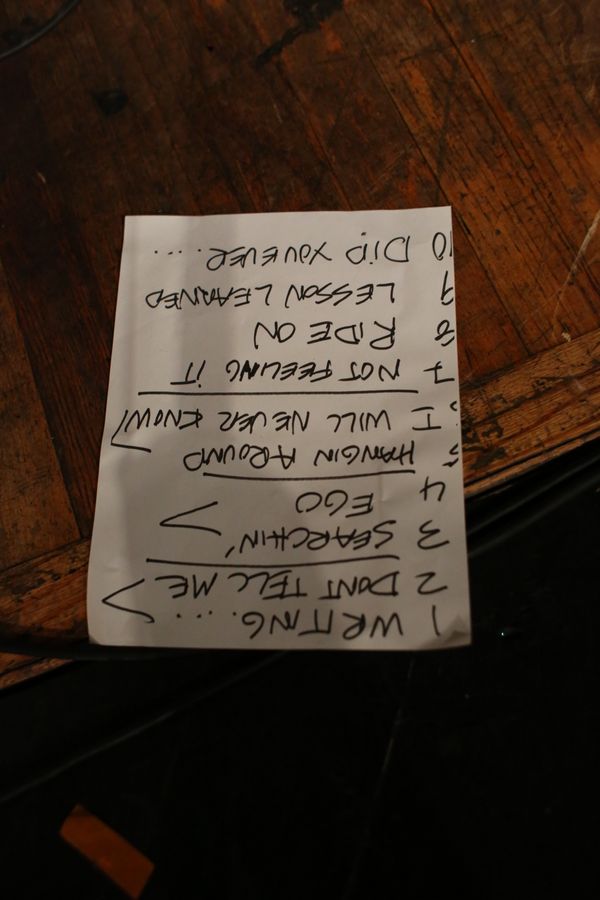 1 WRITING....
2 DONT TELL ME
3 SEARCHIN'
4 EGO
5 HANGIN AROUND
6 I WILL NEVER KNOW
7 NOT FEELING IT
8 RIDE ON
9 LESSON LEARNED
10 DID YOU EVER....